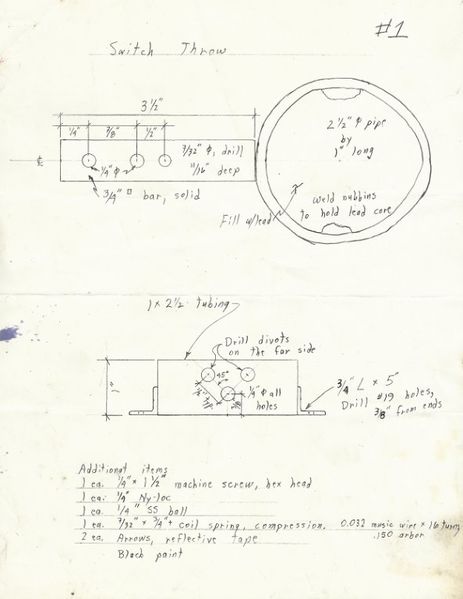 #1
Switch Throw
3 1/2"
1/4" 7/8" 1/2"
2 1/2" ϕ pipe
by
1" long
7/32" ϕ, drill
11/16" deep
℄
1/4" ϕ
3/4" □ bar, solid
Weld nubbins
to hold lead core
Fill w/lead
1 x 2 1/2 tubing
Drill divots
on the far side
45°
1"
1/4" ϕ all
holes
3/4" L x 5"
Drill #19 holes,
3/8" from ends
Additional items
1 ea. 1/4" x 1 1/2" machine screw, hex head
1 ea. 1/4" Ny-loc
1 ea. 1/4" SS ball
1 ea. 7/32" x 3/4"+ coil spring, compression. 0.032 music wire x 16 turns
.150 arbor
2 ea. Arrows, reflective tape
Black paint